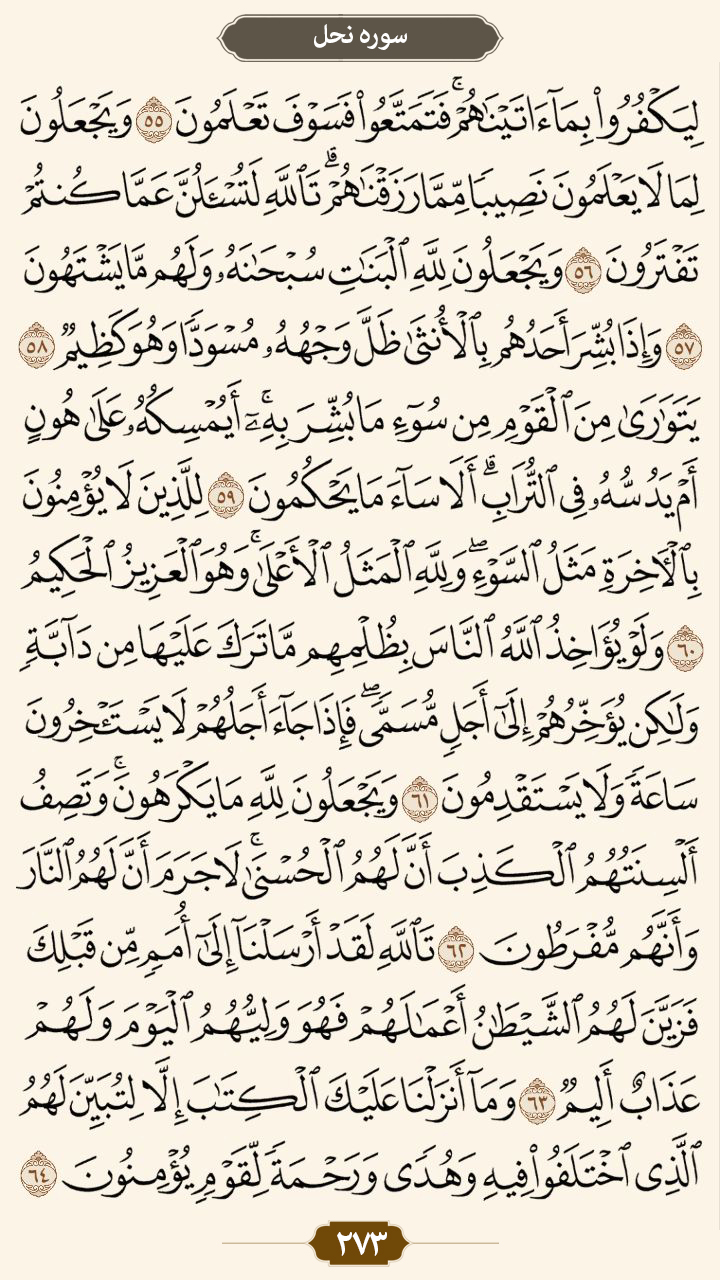 سوره نحل
لِيَكْفُرُوا۟ بِمَآ ءَاتَيْنَٰهُمْ ۚ فَتَمَتَّعُوا۟ فَسَوْفَ تَعْلَمُونَ ٥٥ وَيَجْعَلُونَ
لِمَا لَا يَعْلَمُونَ نَصِيبًا مِّمَّا رَزَقْنَٰهُمْ ۗ تَٱللَّهِ لَتُسْـَٔلُنَّ عَمَّا كُنتُمْ
تَفْتَرُونَ ٥٦ وَيَجْعَلُونَ لِلَّهِ ٱلْبَنَٰتِ سُبْحَٰنَهُۥ وَلَهُم مَّا يَشْتَهُونَ
٥٧ وَإِذَا بُشِّرَ أَحَدُهُم بِٱلْأُنثَىٰ ظَلَّ وَجْهُهُۥ مُسْوَدًّا وَهُوَ كَظِيمٌ ٥٨
يَتَوَٰرَىٰ مِنَ ٱلْقَوْمِ مِن سُوٓءِ مَا بُشِّرَ بِهِۦٓ ۚ أَيُمْسِكُهُۥ عَلَىٰ هُونٍ
أَمْ يَدُسُّهُۥ فِى ٱلتُّرَابِ ۗ أَلَا سَآءَ مَا يَحْكُمُونَ ٥٩ لِلَّذِينَ لَا يُؤْمِنُونَ
بِٱلْءَاخِرَةِ مَثَلُ ٱلسَّوْءِ ۖ وَلِلَّهِ ٱلْمَثَلُ ٱلْأَعْلَىٰ ۚ وَهُوَ ٱلْعَزِيزُ ٱلْحَكِيمُ
٦٠ وَلَوْ يُؤَاخِذُ ٱللَّهُ ٱلنَّاسَ بِظُلْمِهِم مَّا تَرَكَ عَلَيْهَا مِن دَآبَّةٍ
وَلَٰكِن يُؤَخِّرُهُمْ إِلَىٰٓ أَجَلٍ مُّسَمًّى ۖ فَإِذَا جَآءَ أَجَلُهُمْ لَا يَسْتَـْٔخِرُونَ
سَاعَةً وَلَا يَسْتَقْدِمُونَ ٦١ وَيَجْعَلُونَ لِلَّهِ مَا يَكْرَهُونَ ۚ وَتَصِفُ
أَلْسِنَتُهُمُ ٱلْكَذِبَ أَنَّ لَهُمُ ٱلْحُسْنَىٰ ۚ لَا جَرَمَ أَنَّ لَهُمُ ٱلنَّارَ
وَأَنَّهُم مُّفْرَطُونَ ٦٢ تَٱللَّهِ لَقَدْ أَرْسَلْنَآ إِلَىٰٓ أُمَمٍ مِّن قَبْلِكَ
فَزَيَّنَ لَهُمُ ٱلشَّيْطَٰنُ أَعْمَٰلَهُمْ فَهُوَ وَلِيُّهُمُ ٱلْيَوْمَ وَلَهُمْ
عَذَابٌ أَلِيمٌ ٦٣ وَمَآ أَنزَلْنَا عَلَيْكَ ٱلْكِتَٰبَ إِلَّا لِتُبَيِّنَ لَهُمُ
ٱلَّذِى ٱخْتَلَفُوا۟ فِيهِ وَهُدًى وَرَحْمَةً لِّقَوْمٍ يُؤْمِنُونَ ٦٤
٢٧٣